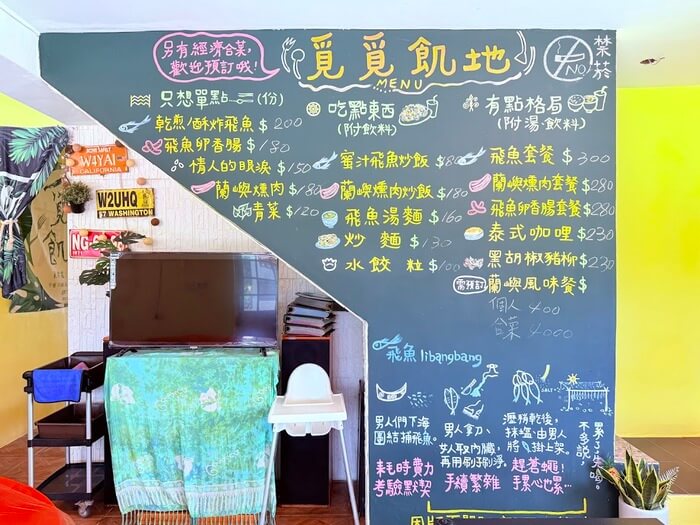 另有經濟合菜,
歡迎預訂哦!
覓覓飢地
MENU
禁菸
NO
只想單點 (份)
乾煎/酥炸飛魚 $200
飛魚卵香腸 $180
情人的眼淚 $150
蘭嶼燻肉 $180
青菜 $120
吃點東西
(附飲料)
蜜汁飛魚炒飯 $180
蘭嶼燻肉炒飯 $180
飛魚湯麵 $160
炒麵 $130
水餃 粒 $100
有點格局
(附湯、飲料)
飛魚套餐 $300
蘭嶼燻肉套餐 $280
飛魚卵香腸套餐 $280
泰式咖哩 $230
黑胡椒豬柳 $230
需預訂 蘭嶼風味餐 $
個人 400
合菜 4000
飛魚 libangbang
男人們下海
團結捕飛魚。
耗時費力
考驗默契
男人拿刀、
女人取內臟,
再用刷子刷淨。
手續繁雜
SALT
瀝乾後,
抹鹽,由男人
將掛上架。
趕蒼蠅!
手累心也累…
不多說,
累了!先喝。
W4YAI
CALIFORNIA
W2UHQ
57 WASHINGTON